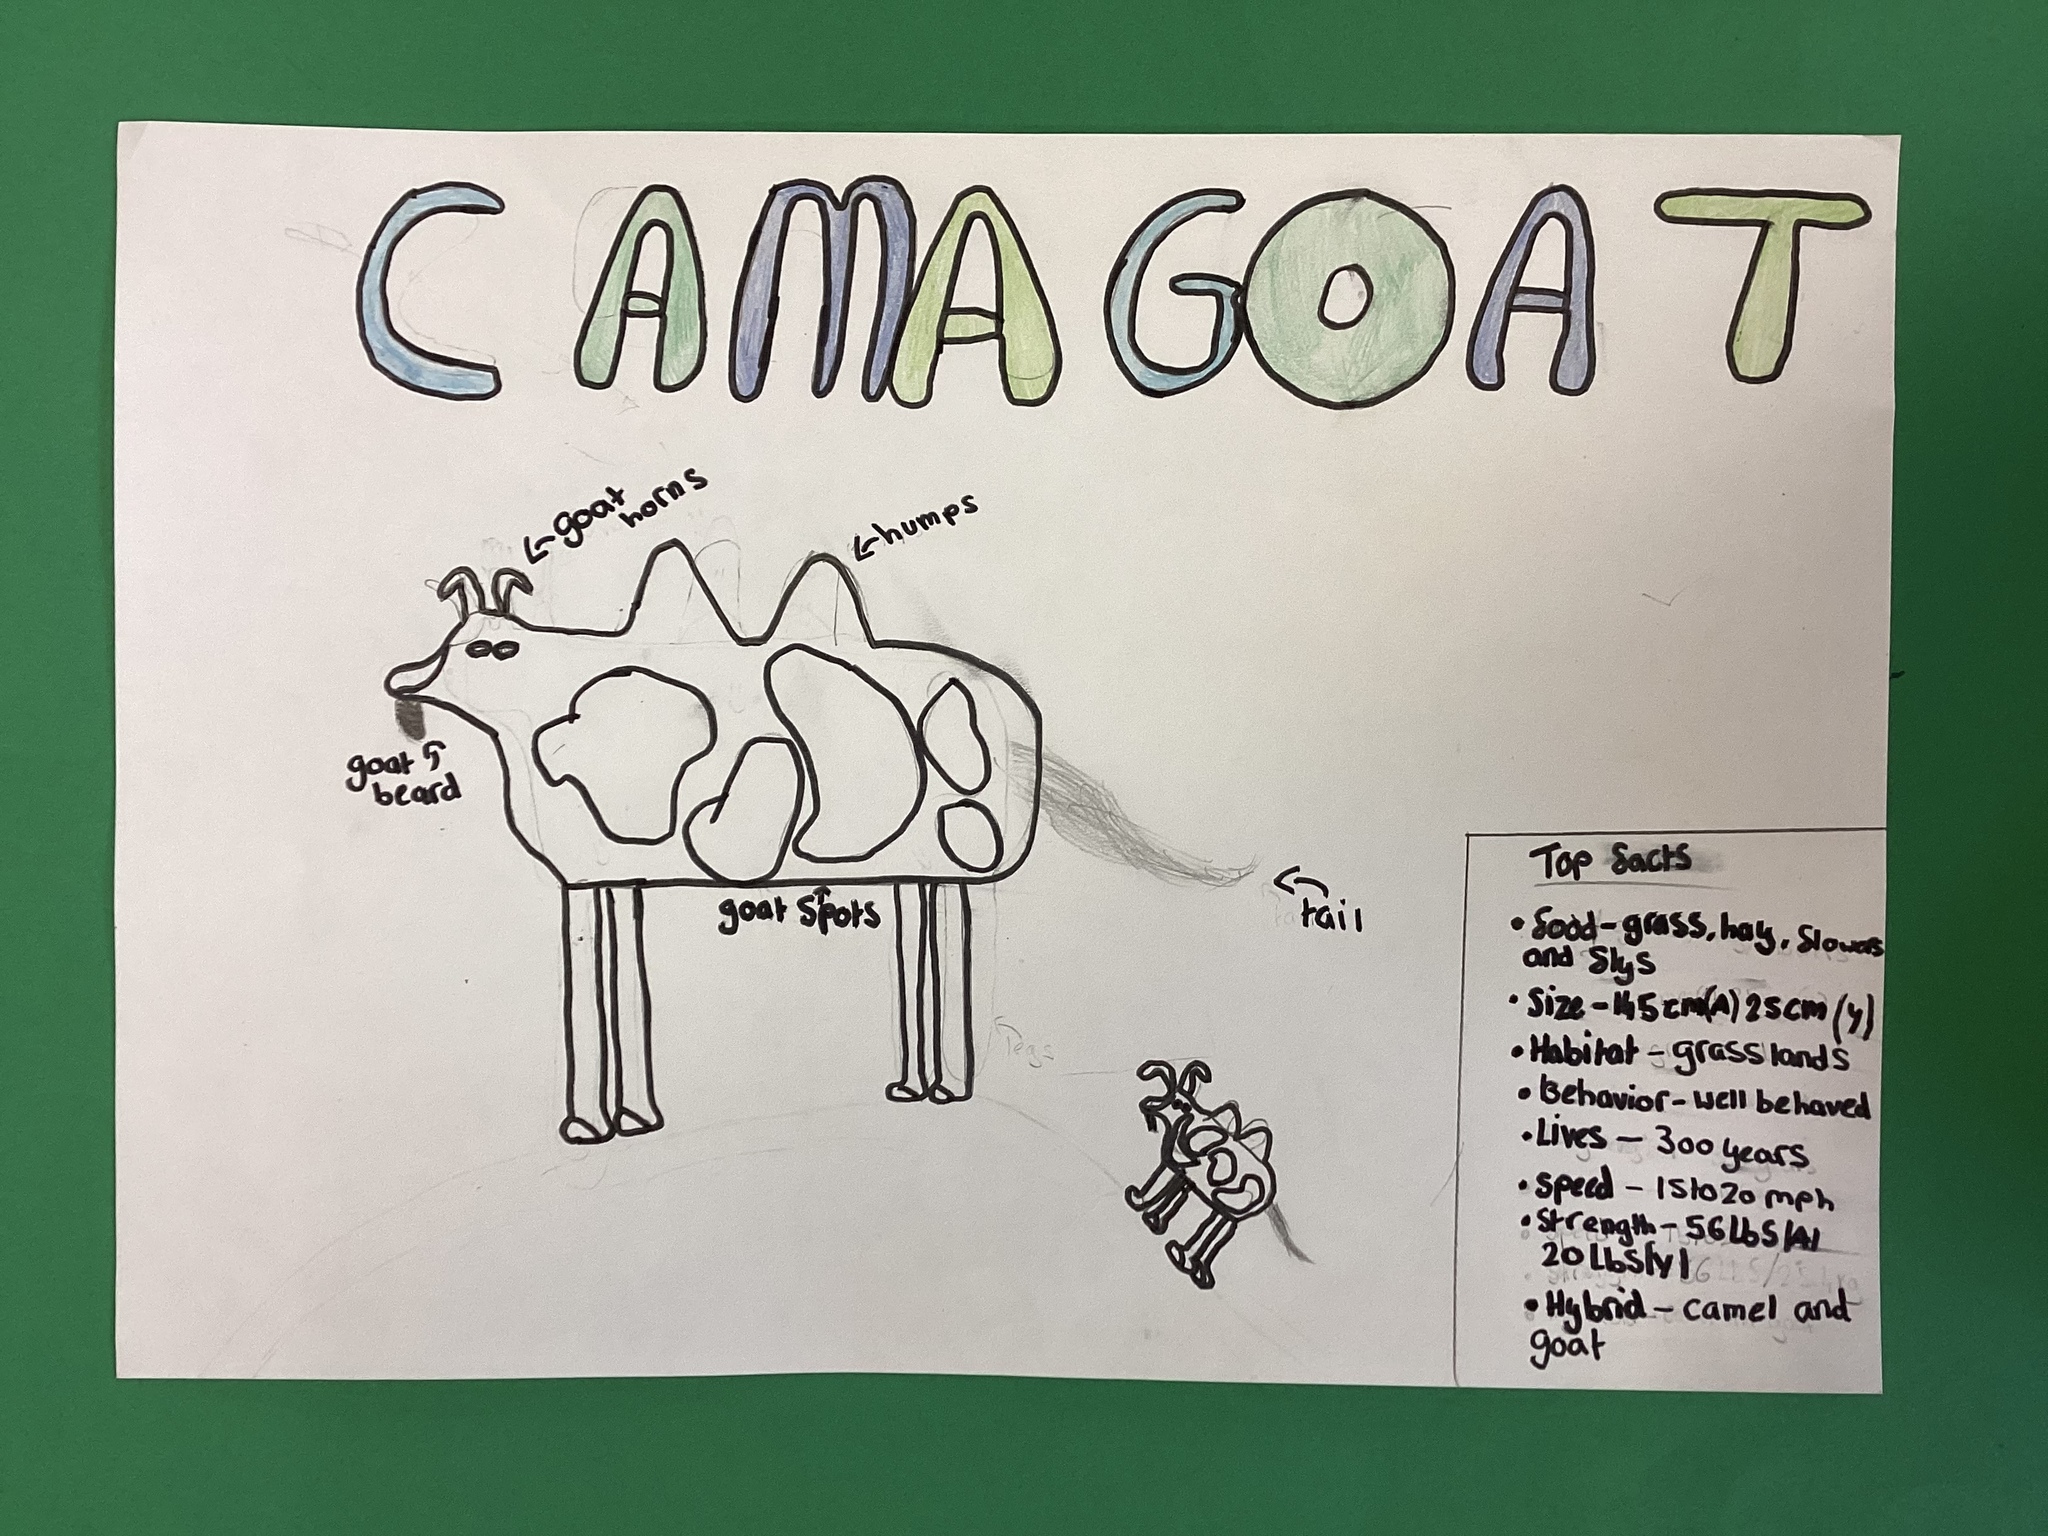 CAMAGOAT
goat horns
humps
goat beard
goat spots
tail
legs
Top facts
• food - grass, hay, flowers
and flys
• Size - 145cm(A) 25cm (y)
• Habitat - grasslands
• Behavior - well behaved
• Lives - 300 years
• speed - 15 to 20 mph
• strength - 56 Lbs/A/
20 Lbs/y/
• Hybrid - camel and
goat